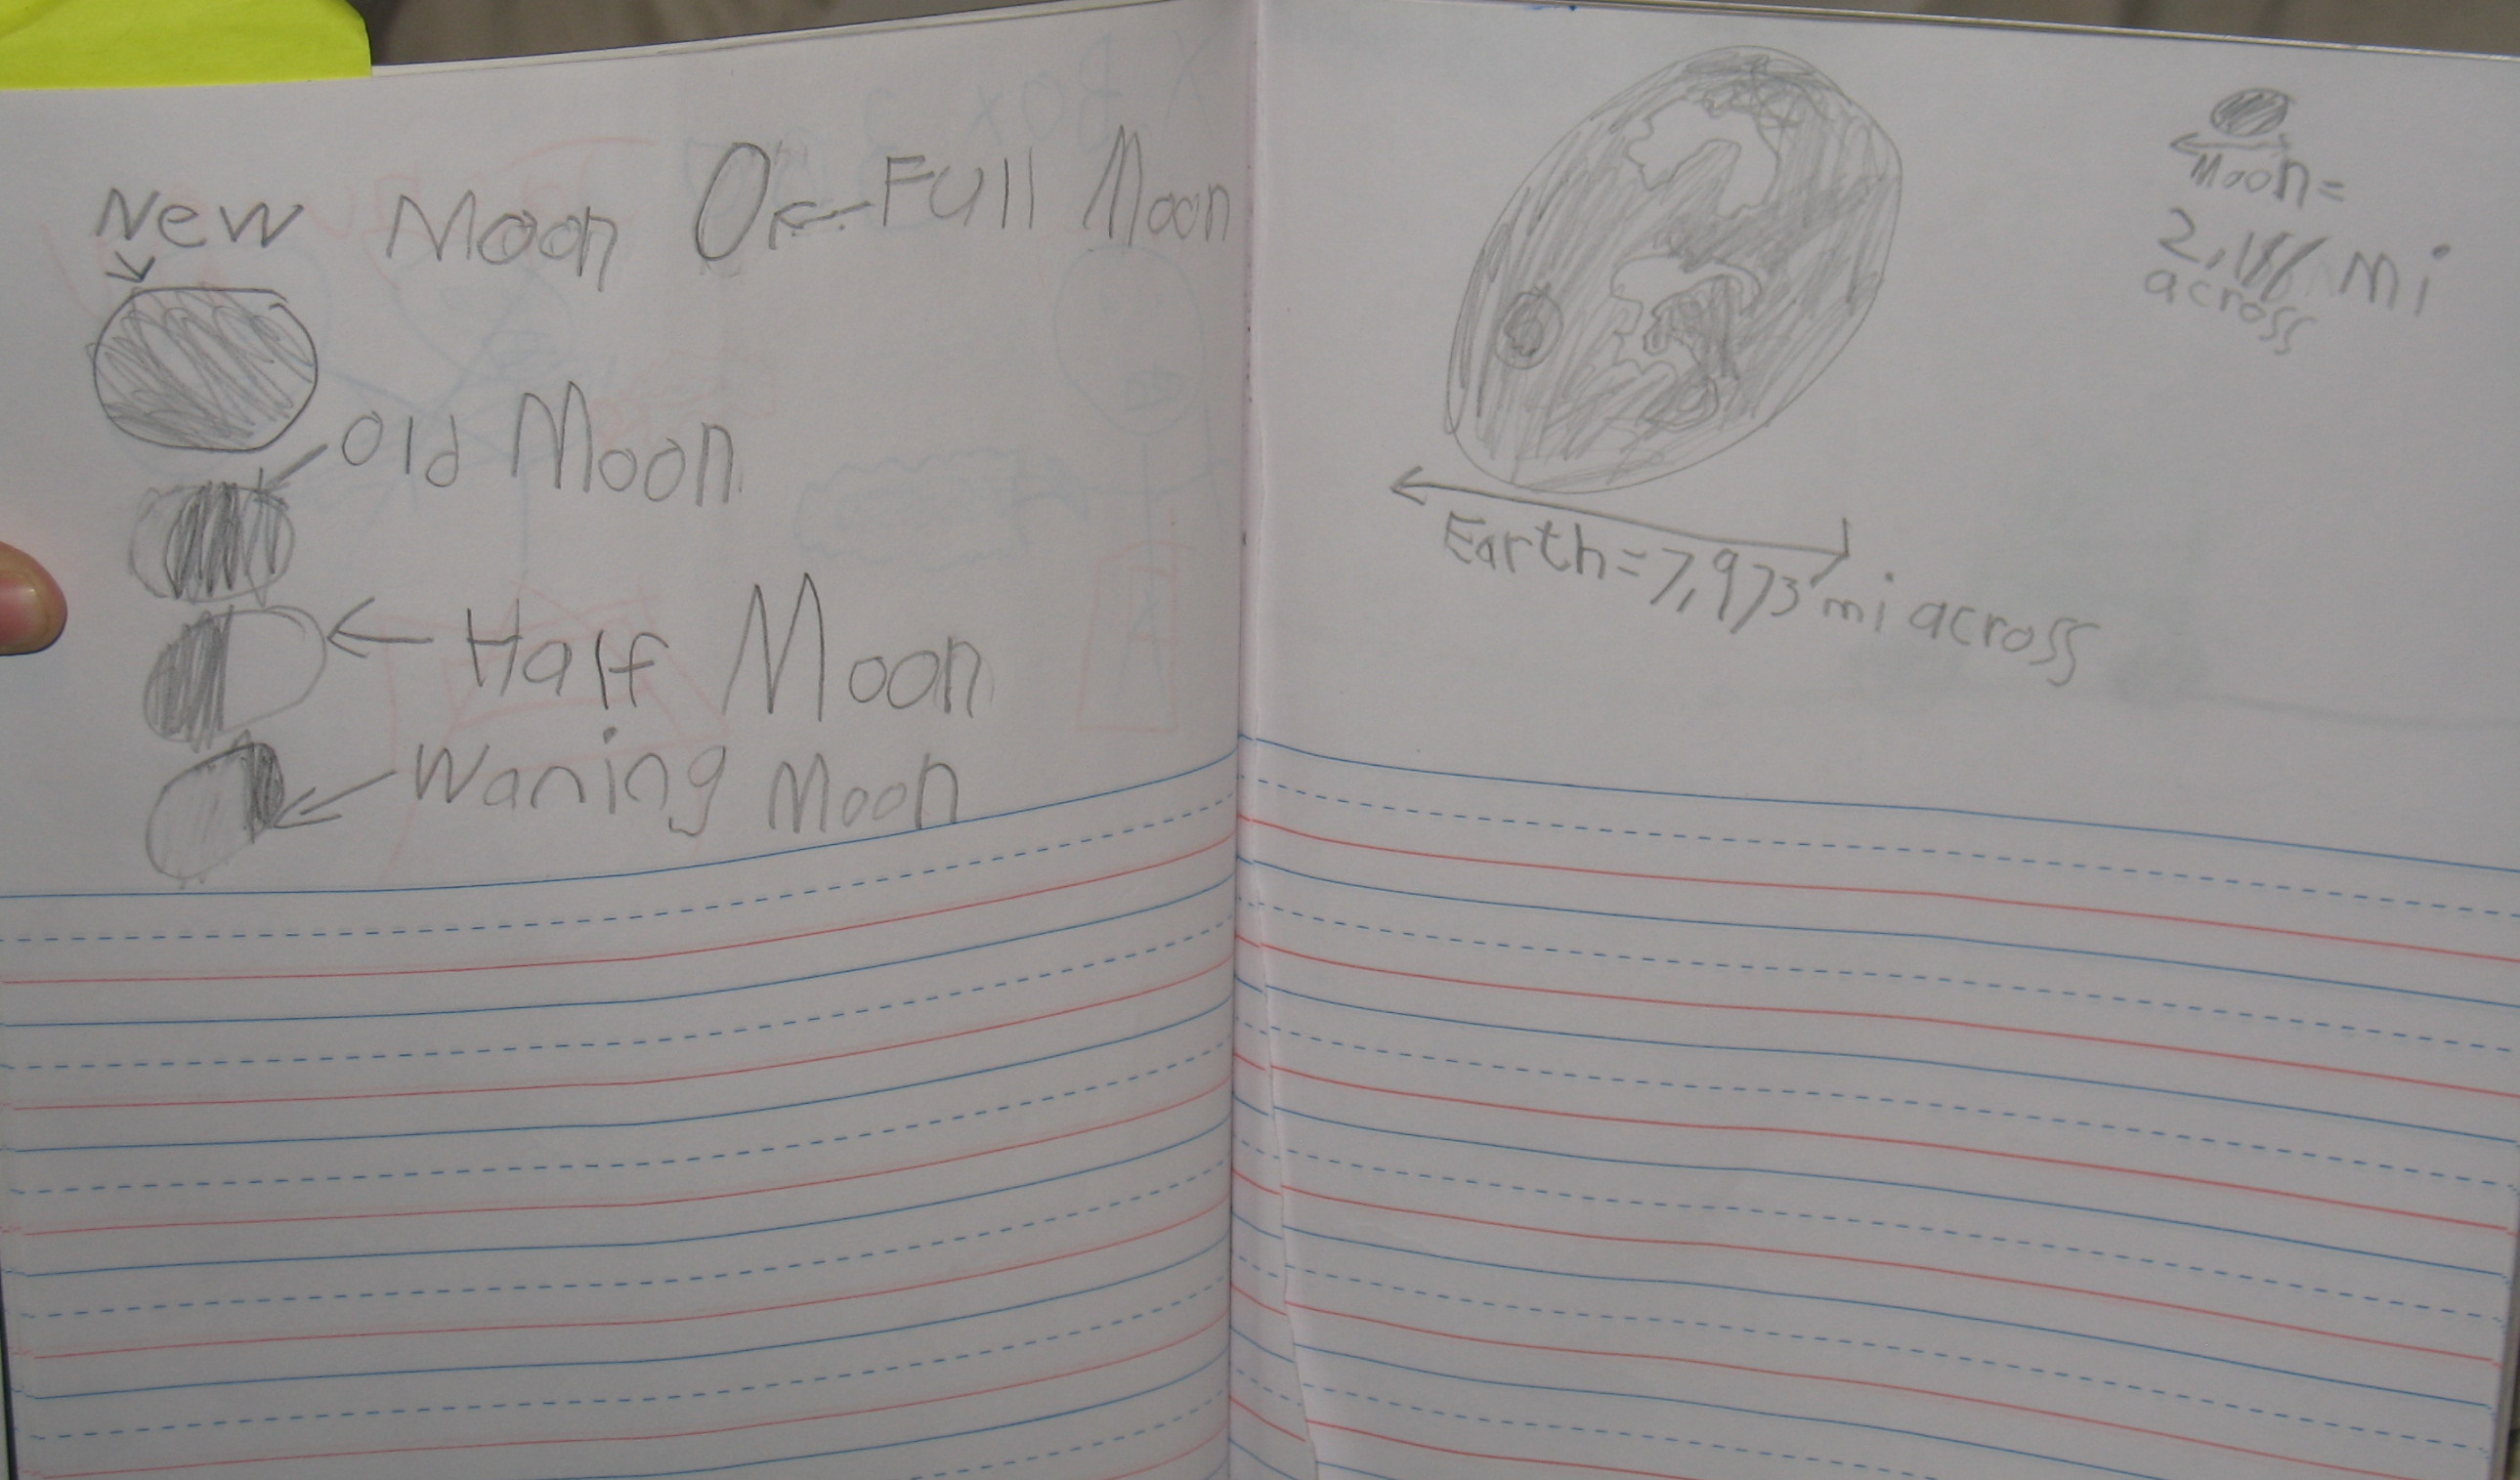 New Moon
Full Moon
Old Moon
Half Moon
Waning Moon
Moon=
mi
across
Earth=7,973 mi across
X Box